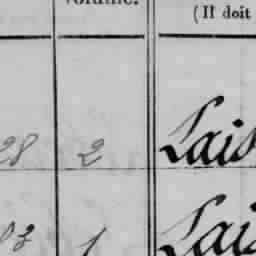 volume.
(Il doit
28 2 Lais
83 1 Lais